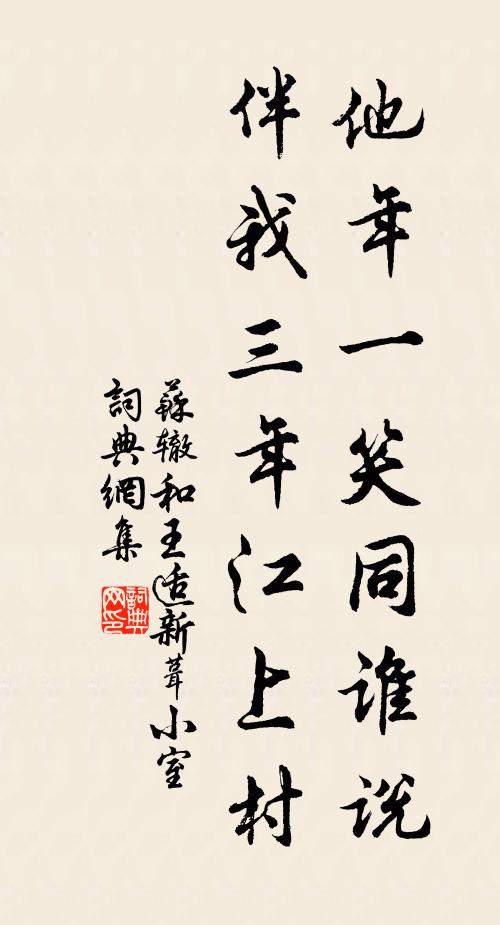 他年一笑同谁说
伴我三年江上村
蘇辙和王适新葺小室
詞典網集
詞典网印